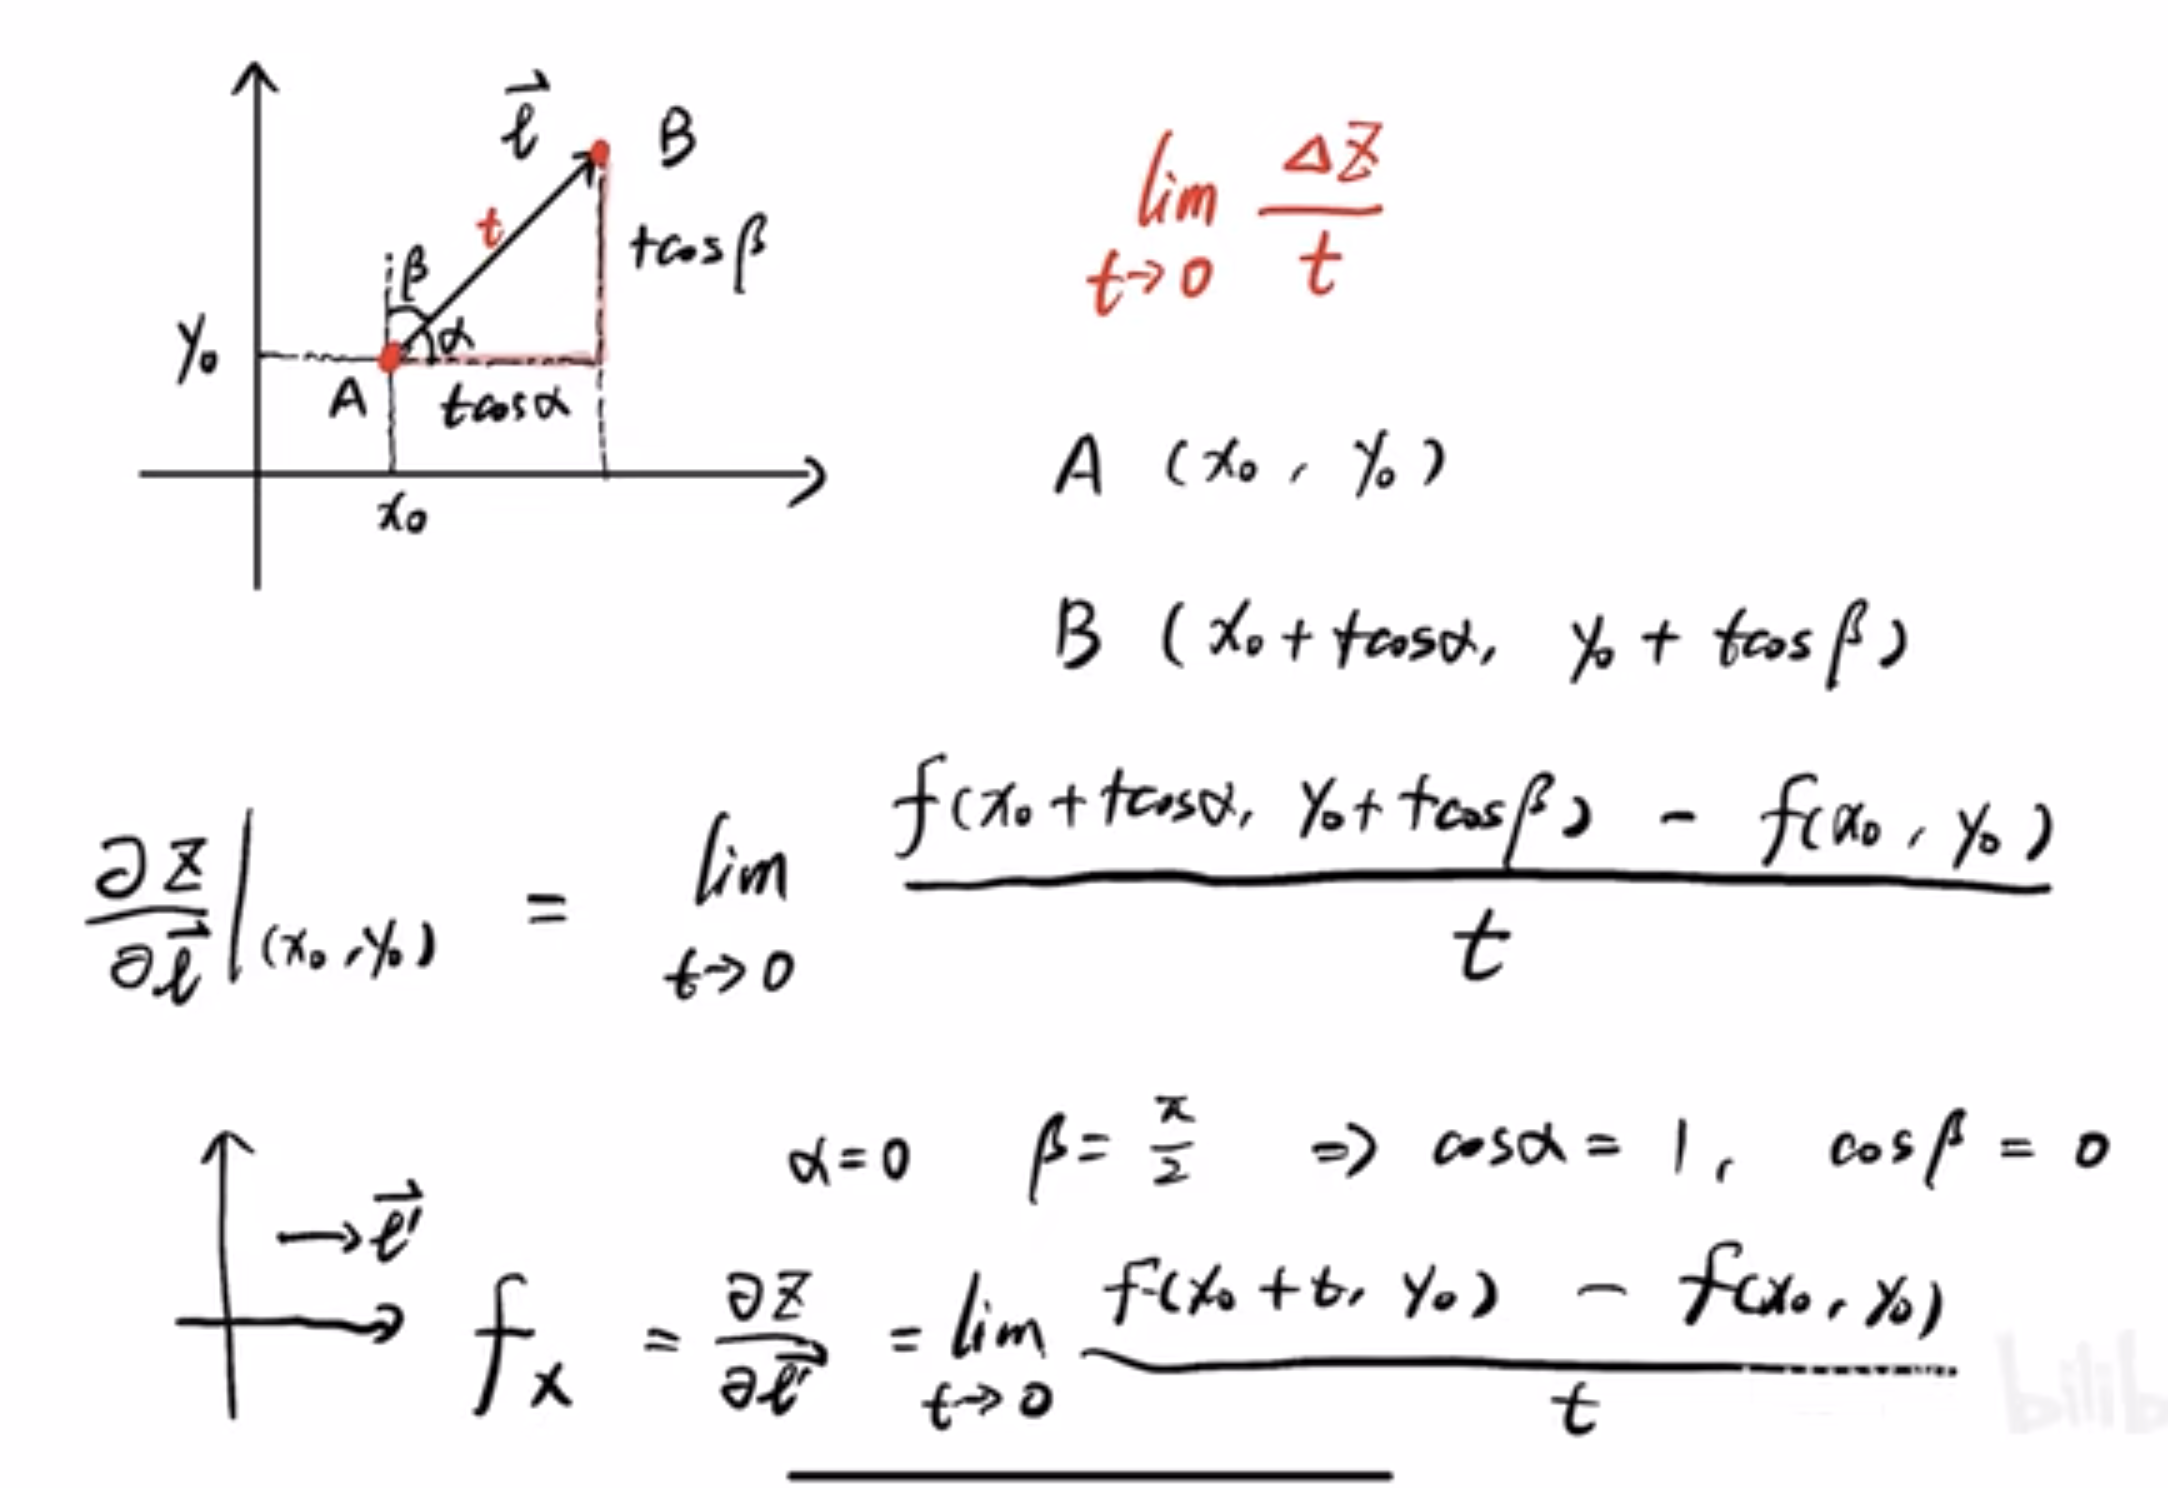 l⃗ B
t
t cosβ
β
α
y₀
A t cosα
x₀
lim Δz/t
t→0
A (x₀, y₀)
B (x₀ + t cosα, y₀ + t cosβ)
∂z/∂l⃗ |(x₀, y₀) = lim t→0 f(x₀ + t cosα, y₀ + t cosβ) - f(x₀, y₀) / t
α = 0 β = π/2 ⇒ cosα = 1, cosβ = 0
l⃗'
fₓ = ∂z/∂l⃗' = lim t→0 f(x₀ + t, y₀) - f(x₀, y₀) / t
bilib